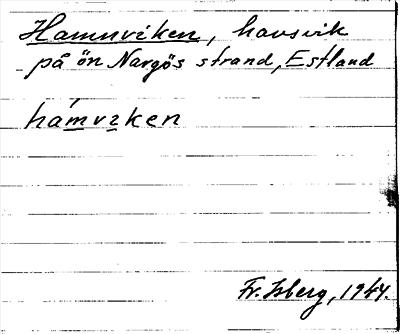 Hamnviken, havsvik
på ön Nargös strand, Estland
hámvıken
Fr. Isberg, 1944.